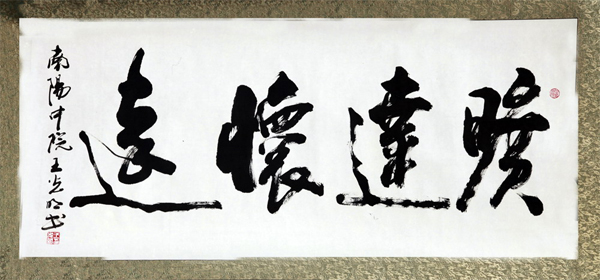 曠達懷遠
南陽中院王光明书